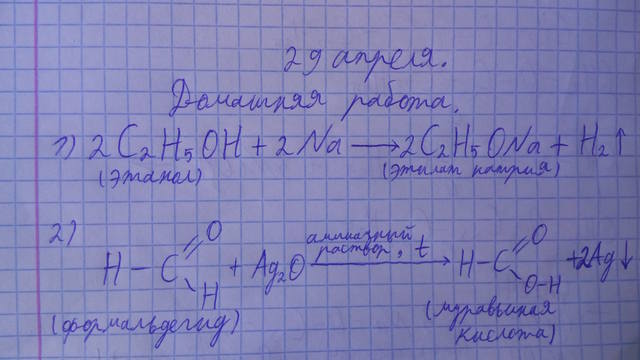 29 апреля.
Домашняя работа.
1) 2C₂H₅OH + 2Na → 2C₂H₅ONa + H₂↑
(этанол) (этилат натрия)
2)
H – C =O – H + Ag₂O аммиачный раствор, t → H – C =O O–H + 2Ag↓
(формальдегид) (муравьиная кислота)